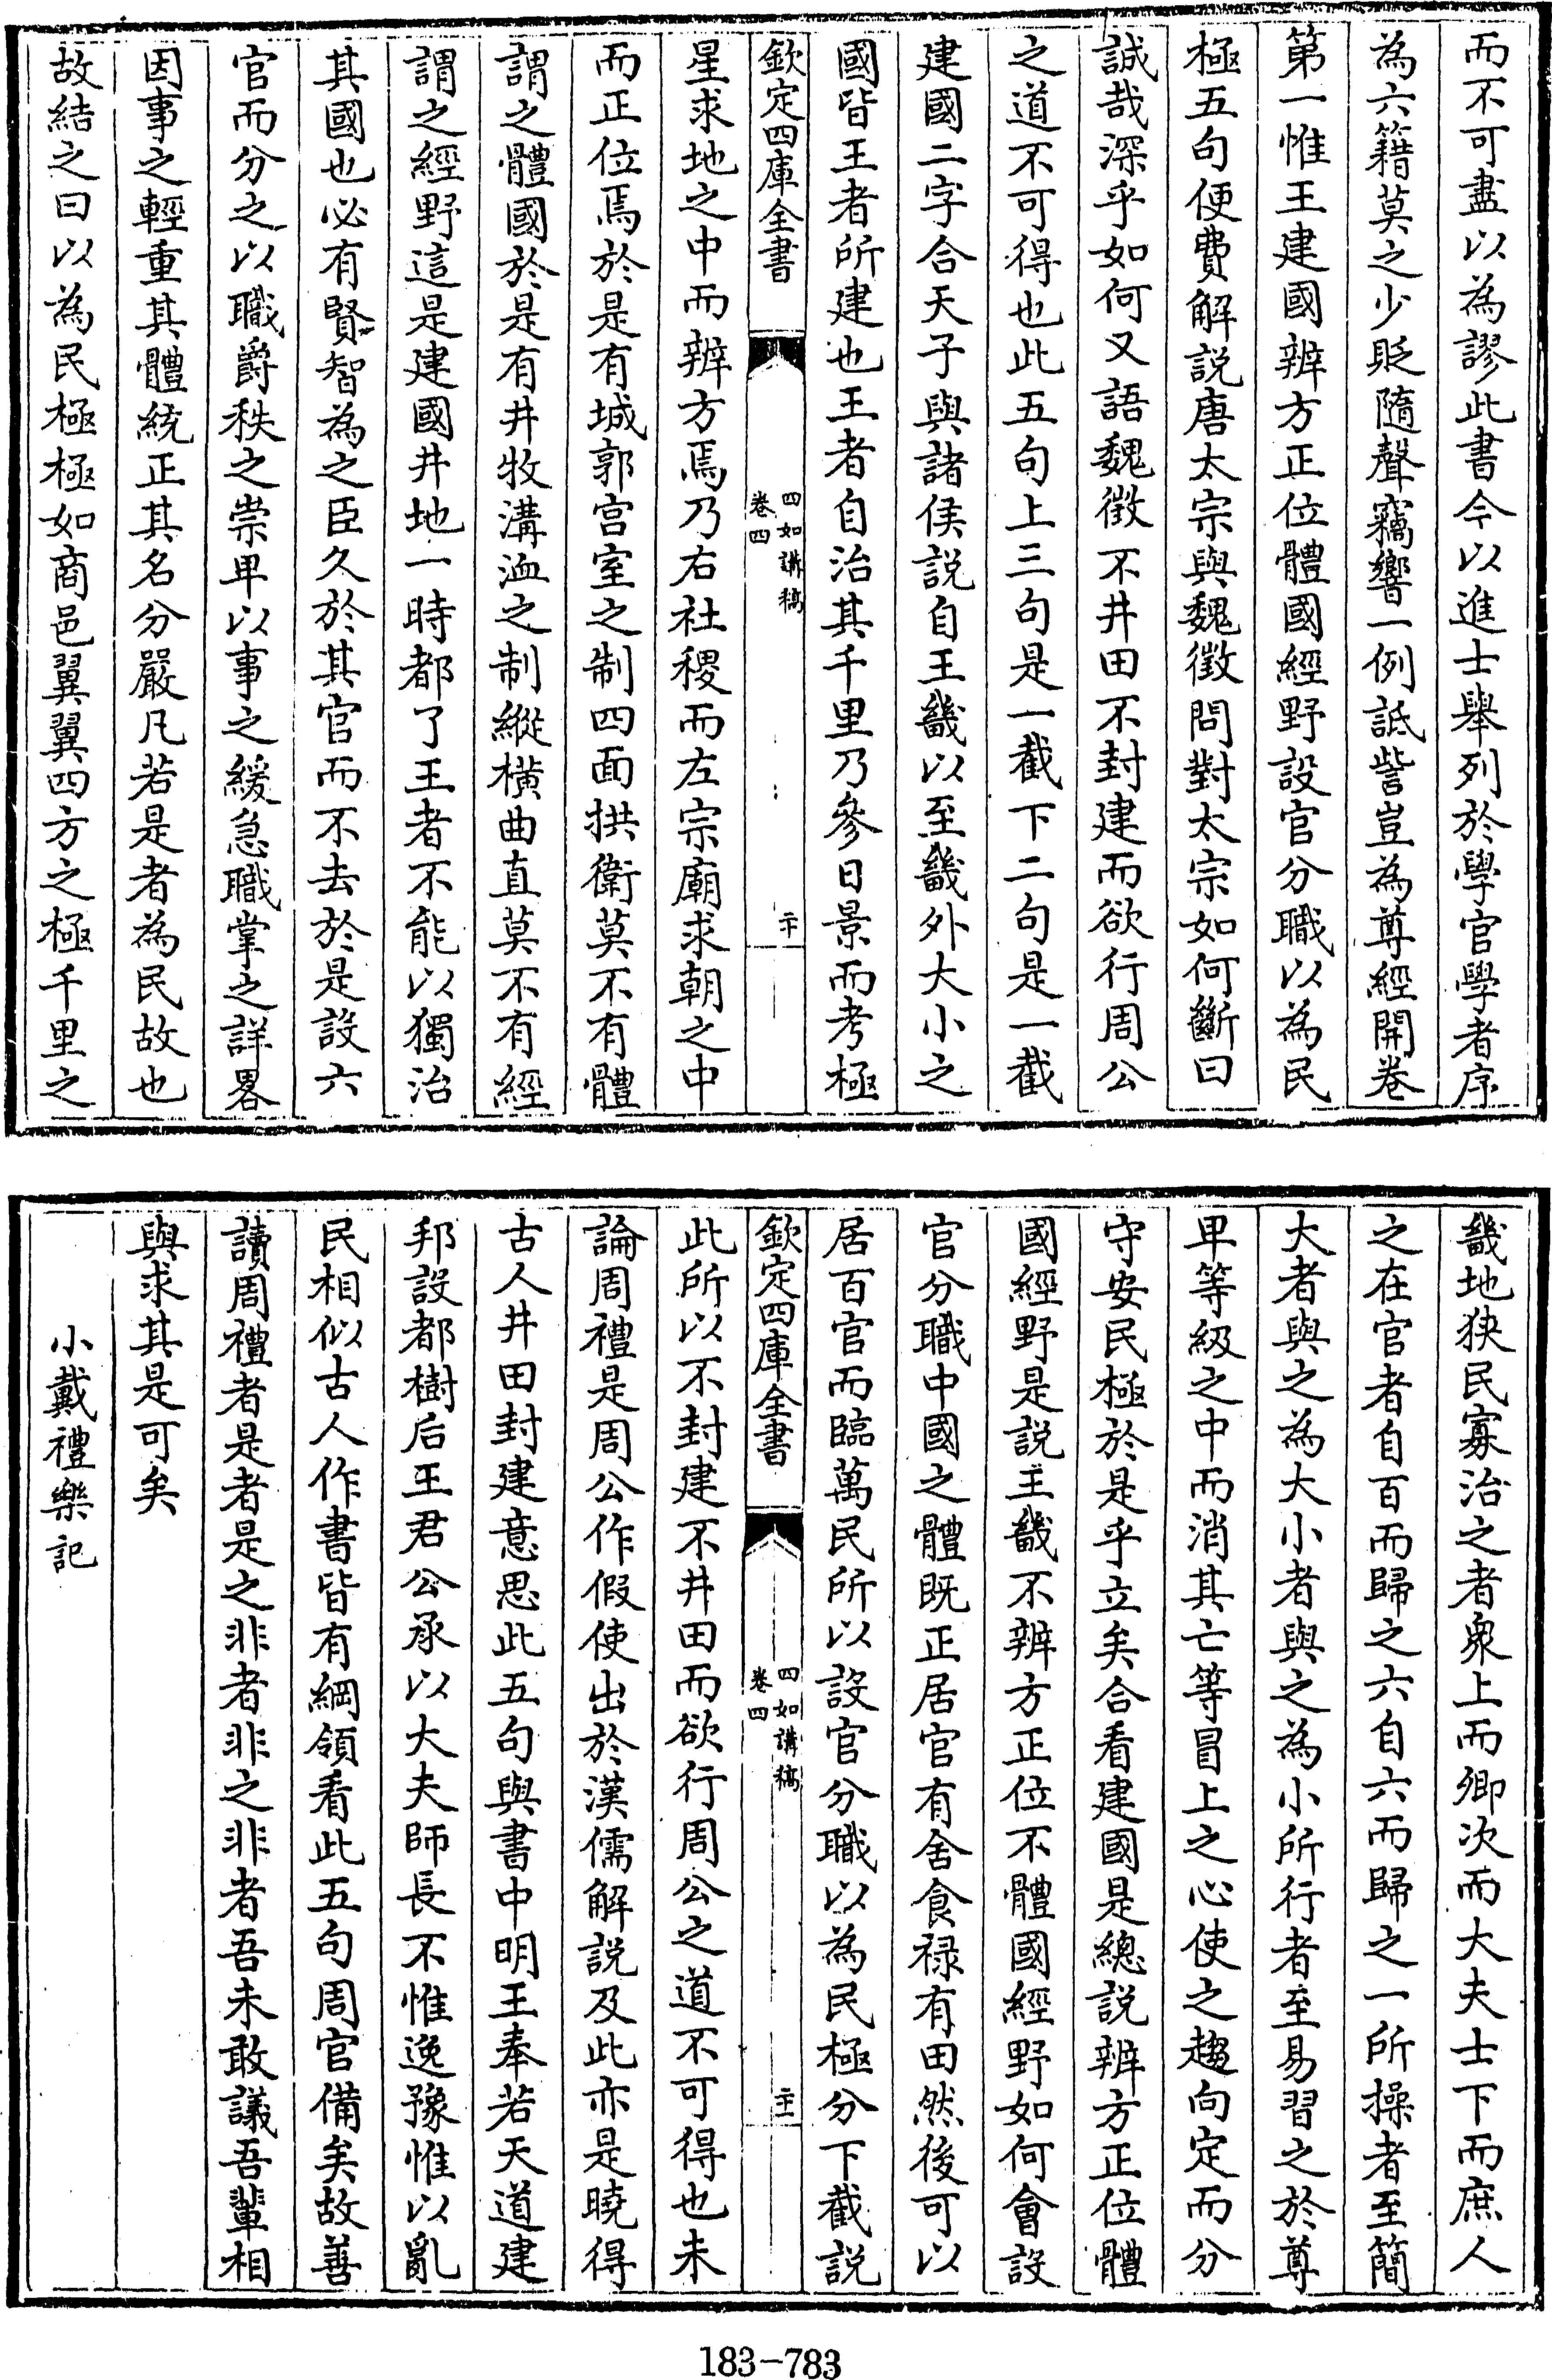 而不可盡以為謬此書今以進士舉列於學官學者序
為六籍莫之少貶隨聲竊響一例詆訾豈為尊經開卷
第一惟王建國辨方正位體國經野設官分職以為民
極五句便費解説唐太宗與魏徴問對太宗如何斷曰
誠哉深乎如何又語魏徴不井田不封建而欲行周公
之道不可得也此五句上三句是一截下二句是一截
建國二字合天子與諸侯説自王畿以至畿外大小之
國皆王者所建也王者自治其千里乃參日景而考極
欽定四庫全書
四如講稿
卷四
二十
星求地之中而辨方焉乃右社稷而左宗廟求朝之中
而正位焉於是有城郭宫室之制四面拱衛莫不有體
謂之體國於是有井牧溝洫之制縱横曲直莫不有經
謂之經野這是建國井地一時都了王者不能以獨治
其國也必有賢智為之臣久於其官而不去於是設六
官而分之以職爵秩之崇卑以事之緩急職掌之詳畧
因事之輕重其體統正其名分嚴凡若是者為民故也
故結之曰以為民極極如商邑翼翼四方之極千里之
畿地狹民寡治之者衆上而卿次而大夫士下而庶人
之在官者自百而歸之六自六而歸之一所操者至簡
大者與之為大小者與之為小所行者至易習之於尊
卑等級之中而消其亡等冒上之心使之趨向定而分
守安民極於是乎立矣合看建國是總説辨方正位體
國經野是説王畿不辨方正位不體國經野如何會設
官分職中國之體既正居官有舍食禄有田然後可以
居百官而臨萬民所以設官分職以為民極分下截説
欽定四庫全書
四如講稿
卷四
二十一
此所以不封建不井田而欲行周公之道不可得也未
論周禮是周公作假使出於漢儒解説及此亦是曉得
古人井田封建意思此五句與書中明王奉若天道建
邦設都樹后王君公承以大夫師長不惟逸豫惟以亂
民相似古人作書皆有綱領看此五句周官備矣故善
讀周禮者是者是之非者非之非者吾未敢議吾輩相
與求其是可矣
小戴禮樂記
183-783